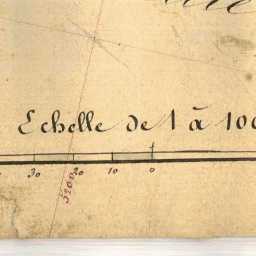 Echelle de 1 à 100
30 20 10 0
5200